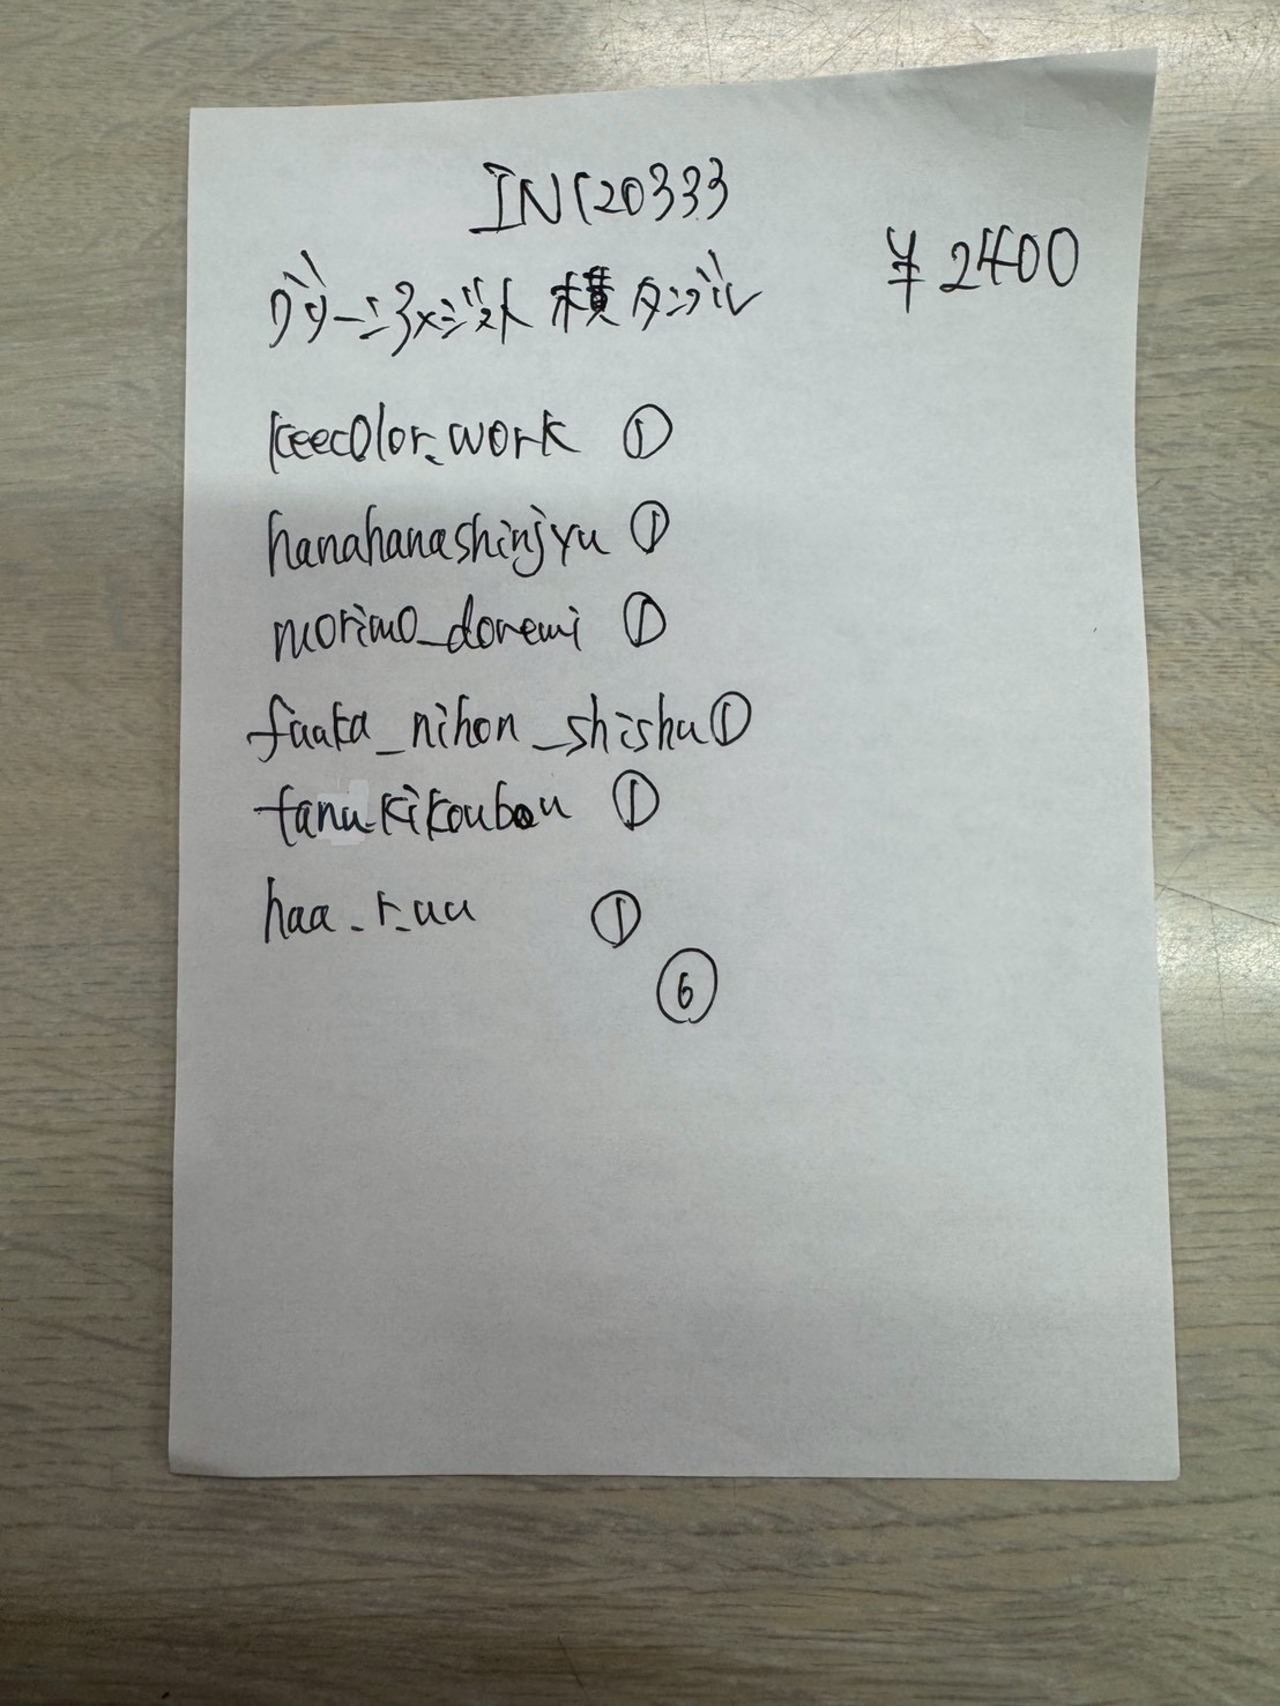 INC20333
¥2400
グリーンアメジスト 横タンブル
keecolor_work ①
hanahanashinjyu ①
morimo_doremi ①
faaka_nihon_shishu ①
tanukikoubou ①
haa_r_uu ①
⑥